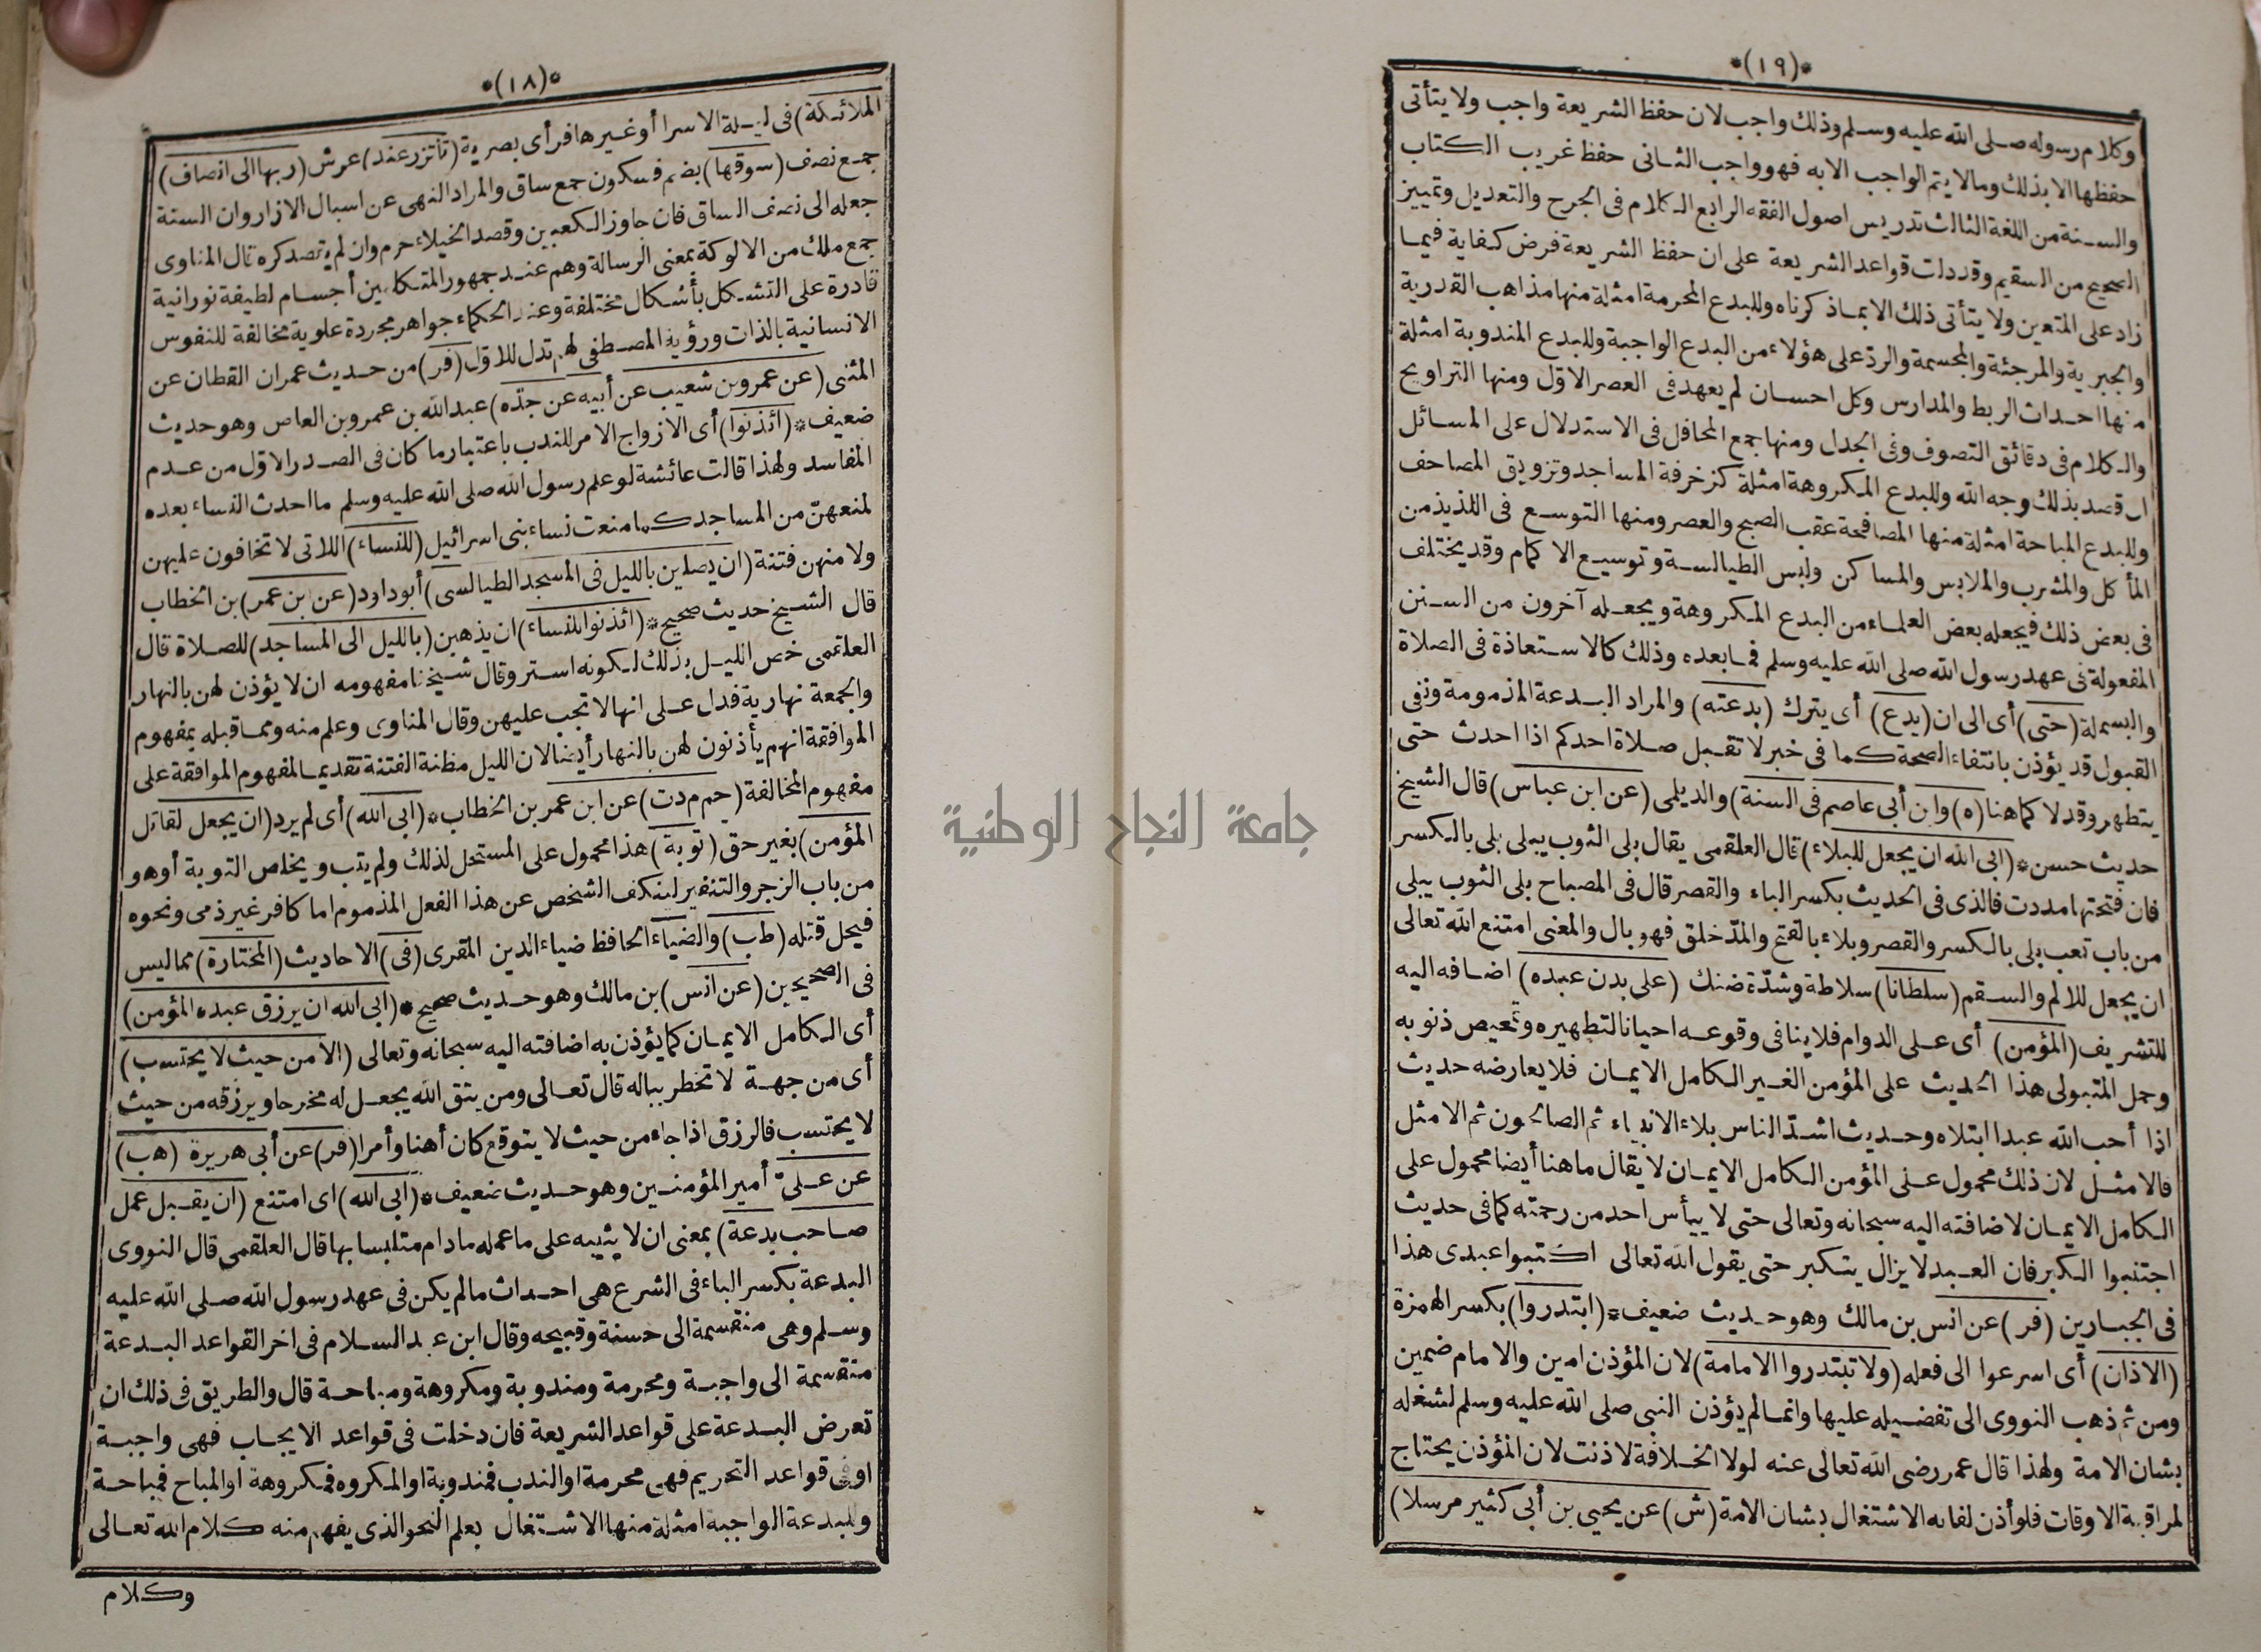 *(١٨)*
الملائكة) فى ليلة الاسرا أو غيرها فرأى بصرية (تأتزر عند) عرش (ربها الى انصاف)
جمع نصف (سوقها) بضم فسكون جمع ساق والمراد النهى عن اسبال الازار وان السنة
جعله الى نصف الساق فان جاوز الكعبين وقصد الخيلاء حرم وان لم يقصد كره قال المناوى
جمع ملك من الالوكة بمعنى الرسالة وهم عند جمهور المتكلمين أجسام لطيفة نورانية
قادرة على التشكل بأشكال مختلفة وعند الحكماء جواهر مجردة علوية مخالفة للنفوس
الانسانية بالذات ورؤية المصطفى لهم تدل للاول (فر) من حديث عمران القطان عن
المثنى (عن عمرو بن شعيب عن أبيه عن جده) عبد الله بن عمرو بن العاص وهو حديث
ضعيف * (ائذنوا) أى الازواج الامر للندب باعتبار ما كان فى الصدر الاول من عدم
المفاسد ولهذا قالت عائشة لو علم رسول الله صلى الله عليه وسلم ما احدث النساء بعده
لمنعهنّ من المساجد كما منعت نساء بنى اسرائيل (للنساء) اللاتى لا تخافون عليهن
ولا منهن فتنة (ان يصلين بالليل فى المسجد الطيالسى) أبو داود (عن بن عمر) بن الخطاب
قال الشيخ حديث صحيح * (ائذنوا للنساء) ان يذهبن (بالليل الى المساجد) للصلاة قال
العلقمى خص الليل بذلك لكونه استر وقال شيخنا مفهومه ان لا يؤذن لهن بالنهار
والجمعة نهارية فدل على انها لا تجب عليهن وقال المناوى وعلم منه ومما قبله بمفهوم
الموافقة انهم يأذنون لهن بالنهار أيضا لان الليل مظنة الفتنة تقديما لمفهوم الموافقة على
مفهوم المخالفة (حم م د ت) عن ابن عمر بن الخطاب * (ابى الله) أى لم يرد (ان يجعل لقاتل
المؤمن) بغير حق (توبة) هذا محمول على المستحل لذلك ولم يتب ويخلص التوبة أو هو
من باب الزجر والتنفير لينكف الشخص عن هذا الفعل المذموم اما كافر غير ذمى ونحوه
فيحل قتله (طب) والضياء الحافظ ضياء الدين المقرى (فى) الاحاديث (المختارة) مما ليس
فى الصحيحين (عن انس) بن مالك وهو حديث صحيح * (ابى الله ان يرزق عبده المؤمن)
أى الكامل الايمان كما يؤذن به اضافته اليه سبحانه وتعالى (الا من حيث لا يحتسب)
أى من جهة لا تخطر بباله قال تعالى ومن يتق الله يجعل له مخرجا ويرزقه من حيث
لا يحتسب فالرزق اذا جاء من حيث لا يتوقع كان أهنا وأمرا (فر) عن أبى هريرة (هب)
عن علىّ أمير المؤمنين وهو حديث ضعيف * (أبى الله) اى امتنع (ان يقبل عمل
صاحب بدعة) بمعنى ان لا يثيبه على ما عمله مادام متلبسا بها قال العلقمى قال النووى
البدعة بكسر الباء فى الشرع هى احداث ما لم يكن فى عهد رسول الله صلى الله عليه
وسلم وهى منقسمة الى حسنة وقبيحه وقال ابن عبد السلام فى اخر القواعد البدعة
منقسمة الى واجبة ومحرمة ومندوبة ومكروهة ومباحة قال والطريق فى ذلك ان
تعرض البدعة على قواعد الشريعة فان دخلت فى قواعد الايجاب فهى واجبة
او فى قواعد التحريم فهى محرمة او الندب فمندوبة او المكروه فمكروهة او المباح فمباحة
وللبدعة الواجبة امثلة منها الاشتغال بعلم النحو الذى يفهم منه كلام الله تعالى
وكلام
*(١٩)*
وكلام رسوله صلى الله عليه وسلم وذلك واجب لان حفظ الشريعة واجب ولا يتأتى
حفظها الا بذلك وما لا يتم الواجب الا به فهو واجب الثانى حفظ غريب الكتاب
والسنة من اللغة الثالث تدريس اصول الفقه الرابع الكلام فى الجرح والتعديل وتمييز
الصحيح من السقيم وقد دلت قواعد الشريعة على ان حفظ الشريعة فرض كفاية فيما
زاد على المتعين ولا يتأتى ذلك الا بما ذكرناه وللبدع المحرمة امثلة منها مذاهب القدرية
والجبرية والمرجئة والمجسمة والرد على هؤلاء من البدع الواجبة وللبدع المندوبة امثلة
منها احداث الربط والمدارس وكل احسان لم يعهد فى العصر الاول ومنها التراويح
والكلام فى دقائق التصوف وفى الجدل ومنها جمع المحافل فى الاستدلال على المسائل
ان قصد بذلك وجه الله وللبدع المكروهة امثلة كزخرفة المساجد وتزويق المصاحف
وللبدع المباحة امثلة منها المصافحة عقب الصبح والعصر ومنها التوسع فى اللذيذ من
المأكل والمشرب والملابس والمساكن ولبس الطيالسة وتوسيع الاكمام وقد يختلف
فى بعض ذلك فيجعله بعض العلماء من البدع المكروهة ويجعله آخرون من السنن
المفعولة فى عهد رسول الله صلى الله عليه وسلم فما بعده وذلك كالاستعاذة فى الصلاة
والبسملة (حتى) أى الى ان (يدع) أى يترك (بدعته) والمراد البدعة المذمومة ونفى
القبول قد يؤذن بانتفاء الصحة كما فى خبر لا تقبل صلاة احدكم اذا احدث حتى
يتطهر وقد لا كما هنا (ه) وابن أبى عاصم فى السنة) والديلمى (عن ابن عباس) قال الشيخ
حديث حسن * (ابى الله ان يجعل للبلاء) قال العلقمى يقال بلى الثوب يبلى بلى بالكسر
فان فتحتها مددت فالذى فى الحديث بكسر الباء والقصر قال فى المصباح بلى الثوب يبلى
من باب تعب بلى بالكسر والقصر وبلاء بالفتح والمدّ خلق فهو بال والمعنى امتنع الله تعالى
ان يجعل للالم والسقم (سلطانا) سلاطة وشدّة ضنك (على بدن عبده) اضافه اليه
للتشريف (المؤمن) أى على الدوام فلا ينافى وقوعه احيانا لتطهيره وتمحيص ذنوبه
وحمل المتبولى هذا الحديث على المؤمن الغير الكامل الايمان فلا يعارضه حديث
اذا أحب الله عبدا ابتلاه وحديث اشدّ الناس بلاء الانبياء ثم الصالحون ثم الامثل
فالامثل لان ذلك محمول على المؤمن الكامل الايمان لا يقال ما هنا أيضا محمول على
الكامل الايمان لاضافته اليه سبحانه وتعالى حتى لا ييأس احد من رحمته كما فى حديث
اجتنبوا الكبر فان العبد لا يزال يتكبر حتى يقول الله تعالى اكتبوا عبدى هذا
فى الجبارين (فر) عن انس بن مالك وهو حديث ضعيف * (ابتدروا) بكسر الهمزة
(الاذان) أى اسرعوا الى فعله (ولا تبتدروا الامامة) لان المؤذن امين والامام ضمين
ومن ثم ذهب النووى الى تفضيله عليها وانما لم يؤذن النبى صلى الله عليه وسلم لشغله
بشان الامة ولهذا قال عمر رضى الله تعالى عنه لولا الخلافة لاذنت لان المؤذن يحتاج
لمراقبة الاوقات فلو أذن لفاته الاشتغال بشان الامة (ش) عن يحيى بن أبى كثير مرسلا)
جامعة النجاح الوطنية